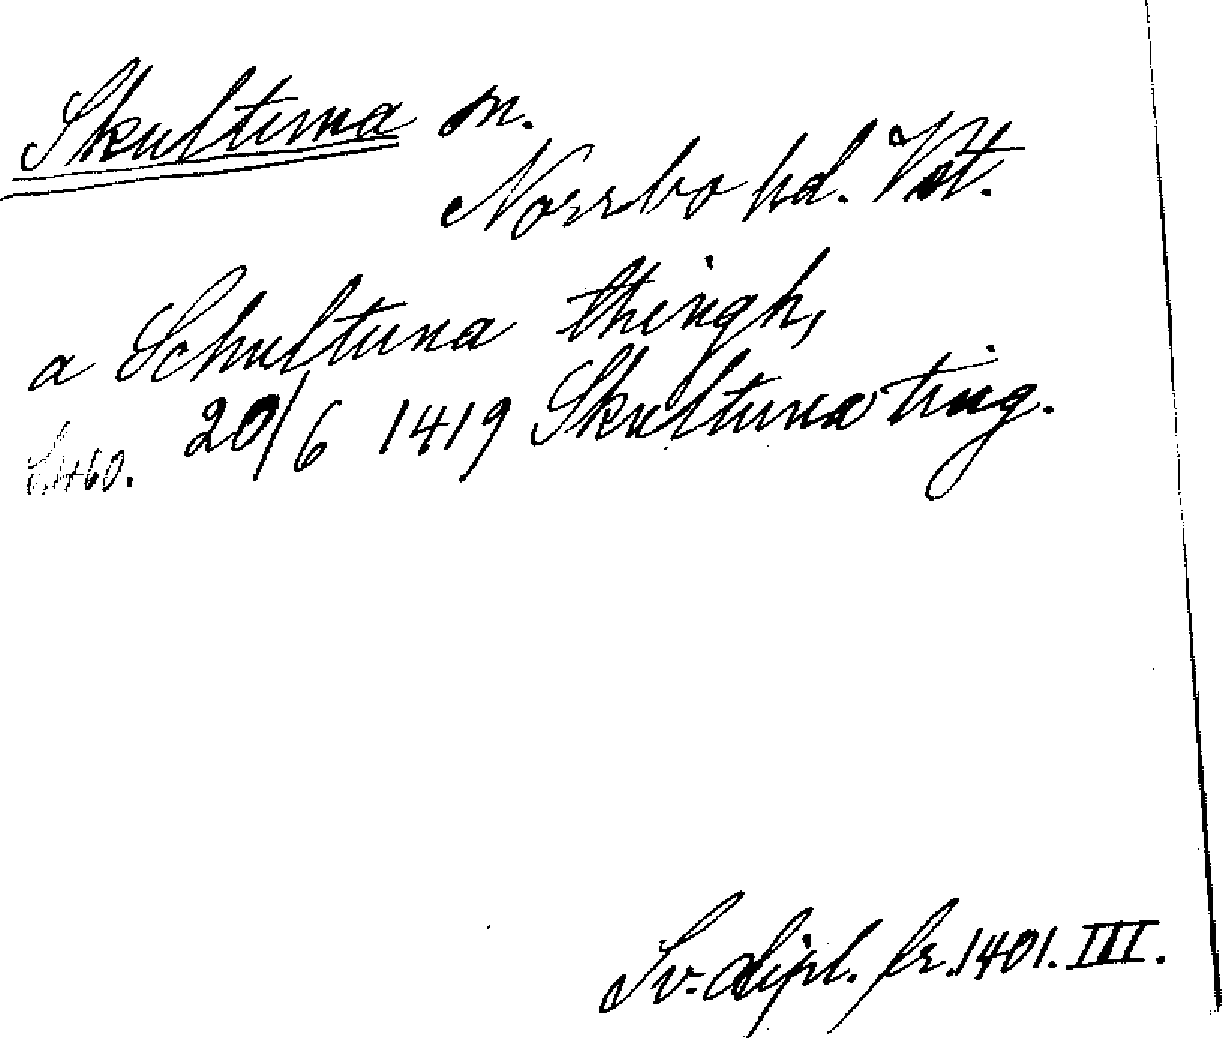 Skultuna sn.
Norrbo hd. Vst.
a Schultuna thingh,
20/6 1419 Skultuna ting.
S. 460.
Sv. dipl. fr. 1401. III.